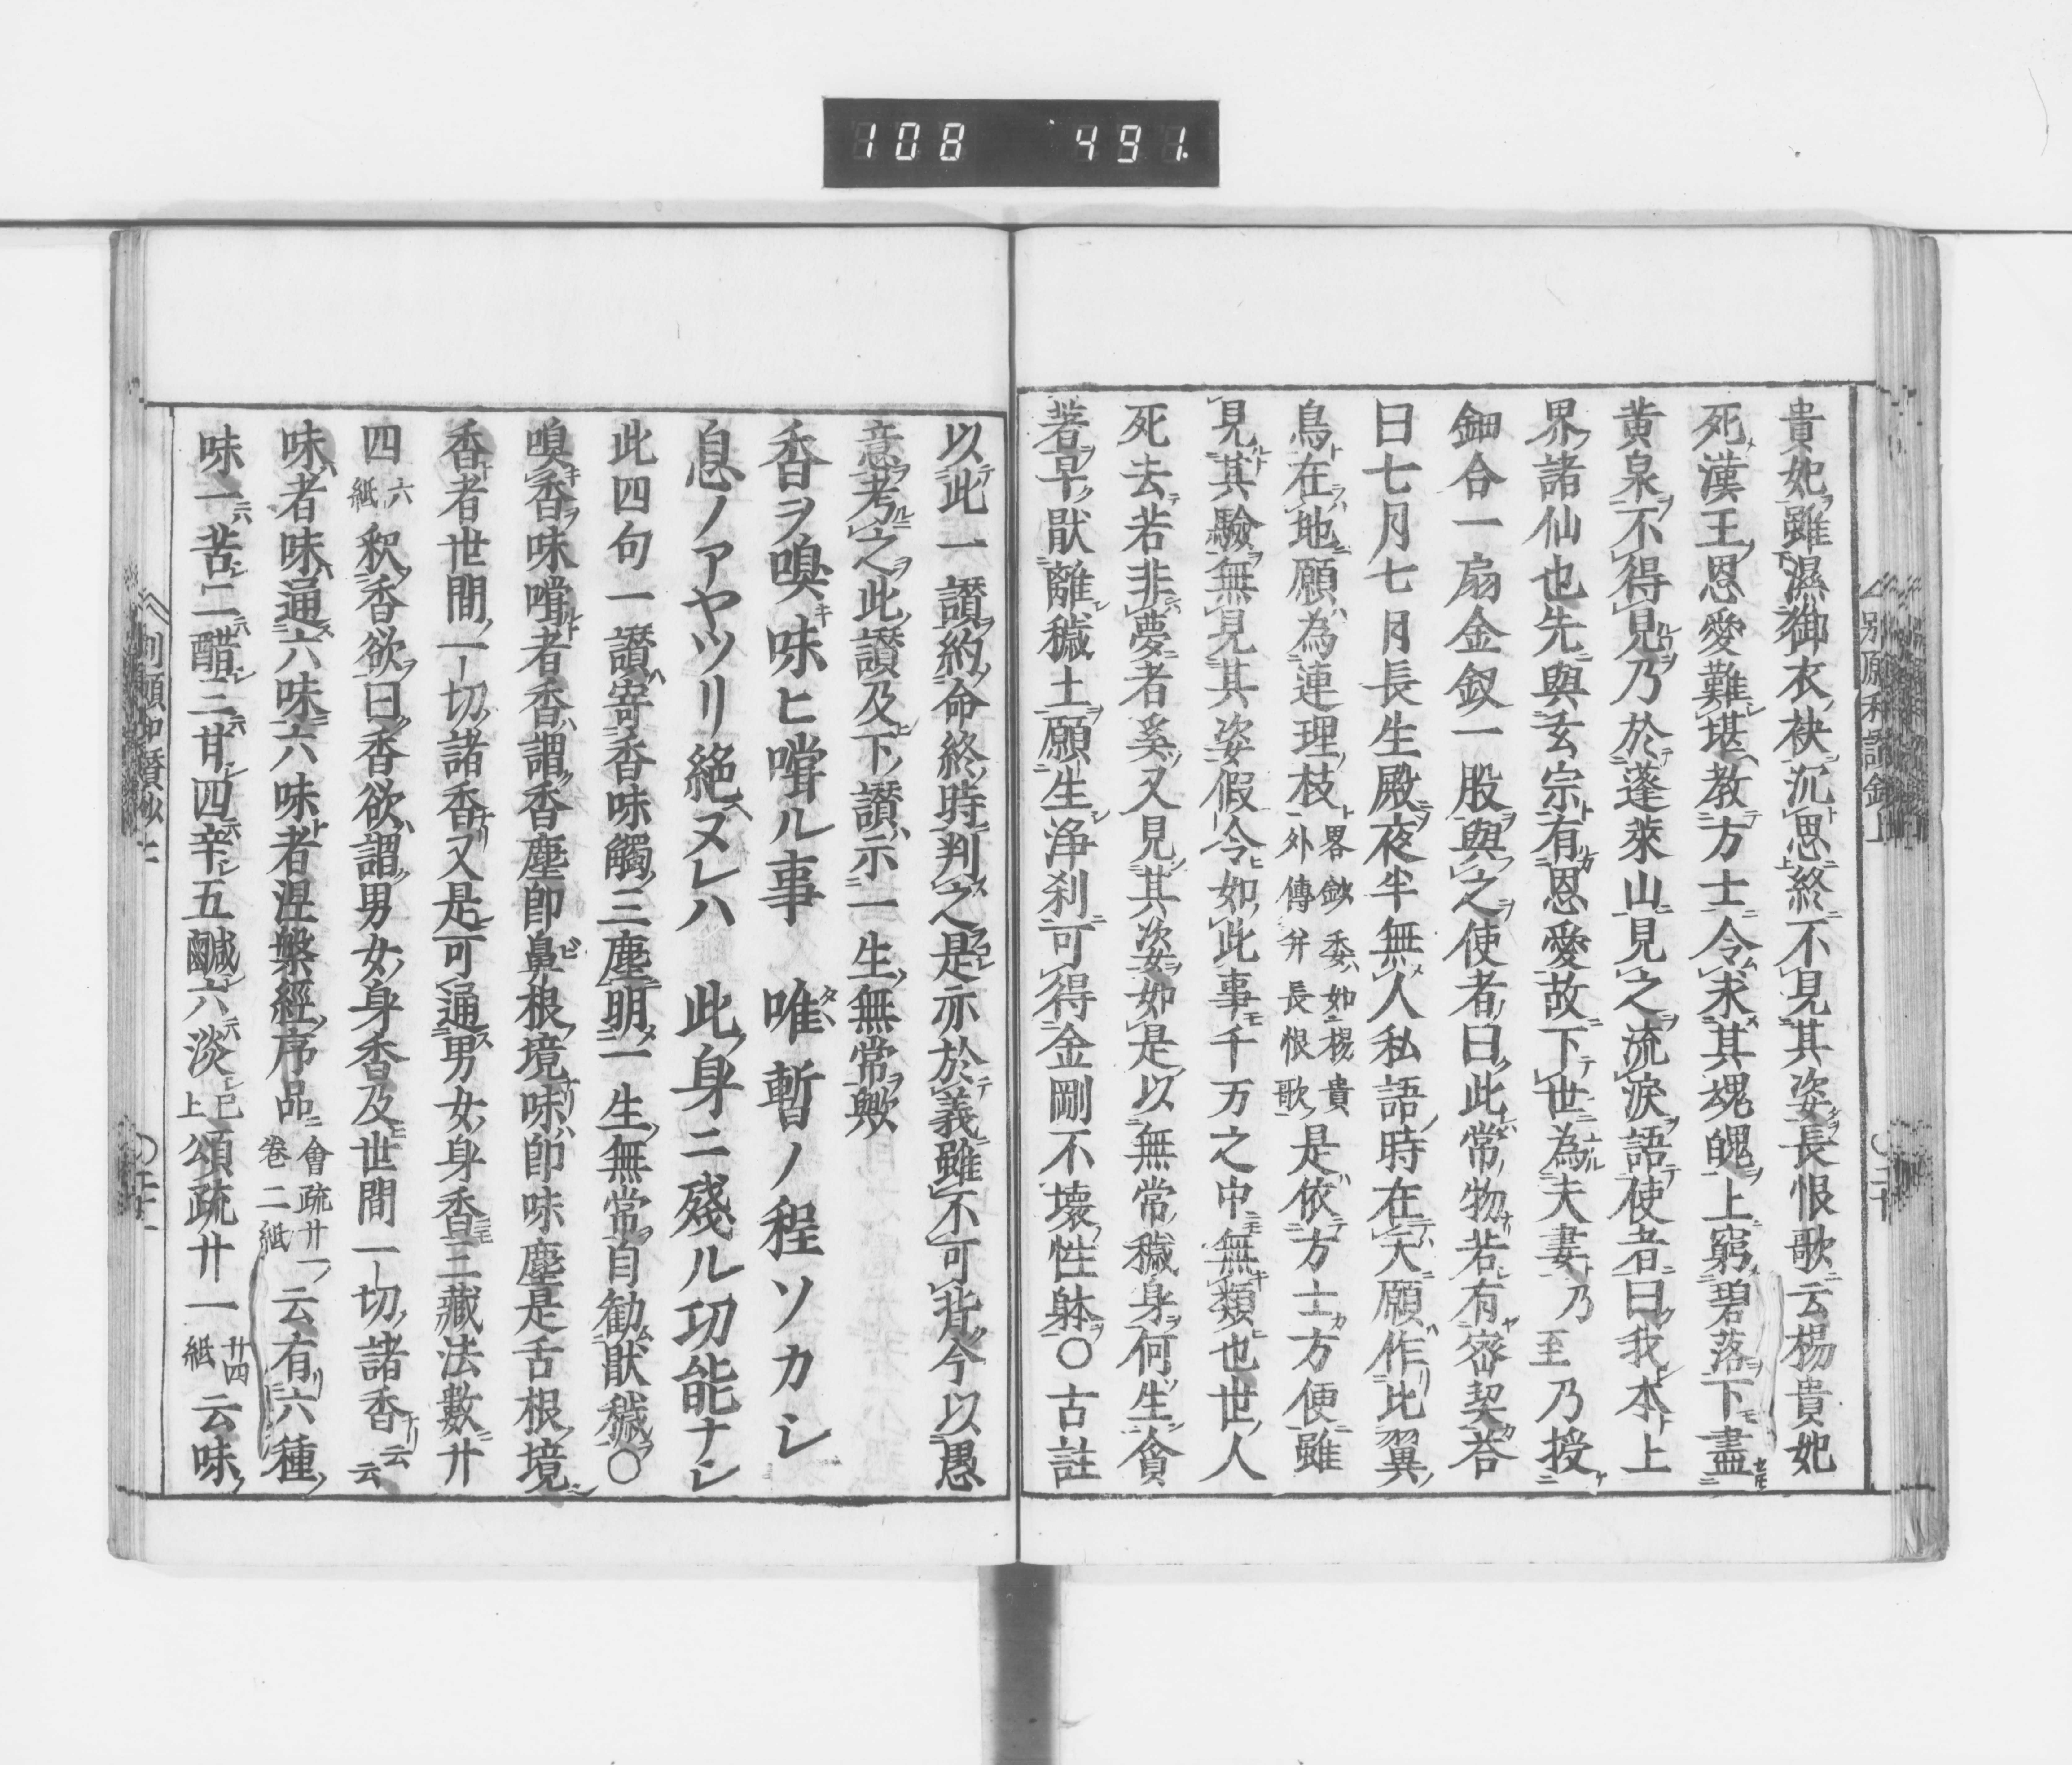 108 491
貴妃雖濕御衣袂沉思終不見其姿長恨歌云楊貴妃
死漢王恩愛難堪教方士令求其魂魄上窮碧落下盡
黄泉不得見乃於蓬萊山見之流淚語使者曰我本上
界諸仙也先與玄宗有恩愛故下世為夫妻乃至乃授
鈿合一扇金釵一股與之使者曰此常物若有密契荅
曰七月七月長生殿夜半無人私語時在天願作比翼
鳥在地願為連理枝畧鈔委如楊貴外傳并長恨歌是依方士方便雖
見其驗無見其姿假令如此事千万之中無類也世人
死去若非夢者奚又見其姿如是以無常穢身何生貪
著早猒離穢土願生浄刹可得金剛不壊性躰〇古註
以此一讃約命終時判之是亦於義雖不可背今以愚
意考之此讃及下讃示一生無常歟
香ヲ嗅キ味ヒ嘗ル事　唯暫ノ程ソカシ
息ノアヤツリ絶ヌレハ　此身ニ殘ル功能ナシ
此四句一讃寄香味觸三塵明一生無常自勧猒穢〇
嗅香味嘗者香謂香塵即鼻根境味即味塵是舌根境
香者世間一切諸香又是可通男女身香三藏法數廿
四六紙釈香欲曰香欲謂男女身香及世間一切諸香云云
味者味通六味六味者涅槃經序品會疏廿一巻二紙云有六種
味一苦二醋三甘四辛五鹹六淡已上頌疏廿一廿四紙云味